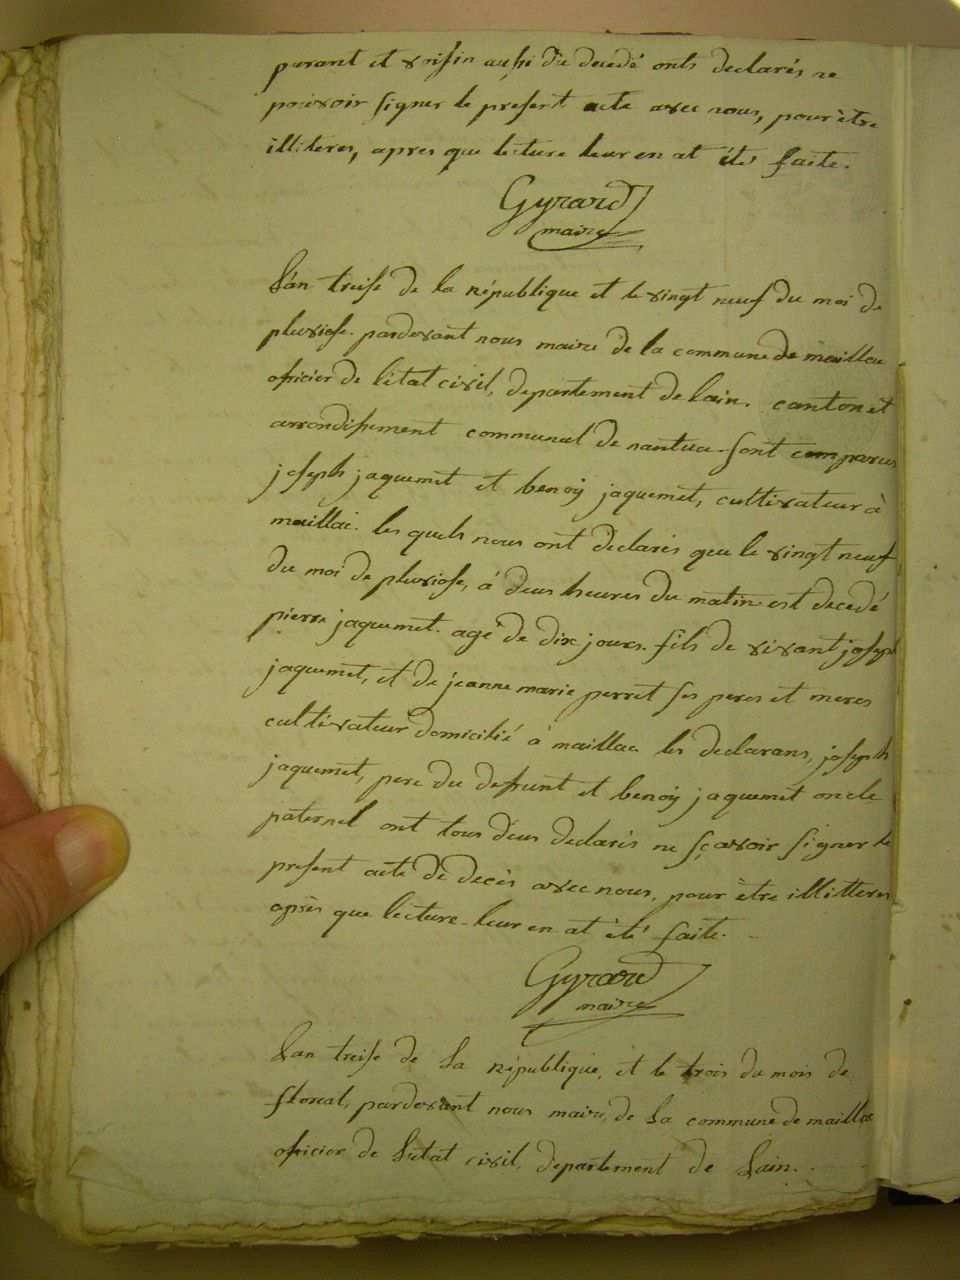 parant et voisin aussi du decedé onts declarés ne
pouvoir signer le present acte avec nous, pour être
illiteres, apres que lecture leur en at étés faite.
Gyrard
maire
L'an treise de la république et le vingt neuf du moi de
pluviose. pardevant nous maire de la commune de maillac
officier de l'etat civil, departement de lain. canton et
arrondissement communal de nantua sont comparus
joseph jaquemet et benoy jaquemet, cultivateur à
maillac. les quels nous ont declarés que le vingt neuf
du moi de pluviose, à deux heures du matin est decedé
pierre jaquemet. agé de dix jours. fils de vivant joseph
jaquemet, et de jeanne marie perret ses peres et meres
cultivateur domicilié à maillac les declarans, joseph
jaquemet, pere du defunt et benoy jaquemet oncle
paternel ont tous deux declarés ne sçavoir signer le
present acte de decès avec nous, pour être illitteres
après que lecture leur en at été faite.
Gyrard
maire
Lan treise de la république, et le trois du mois de
floreal, pardevant nous maire, de la commune de maillac
officier de l'etat civil, departement de lain.